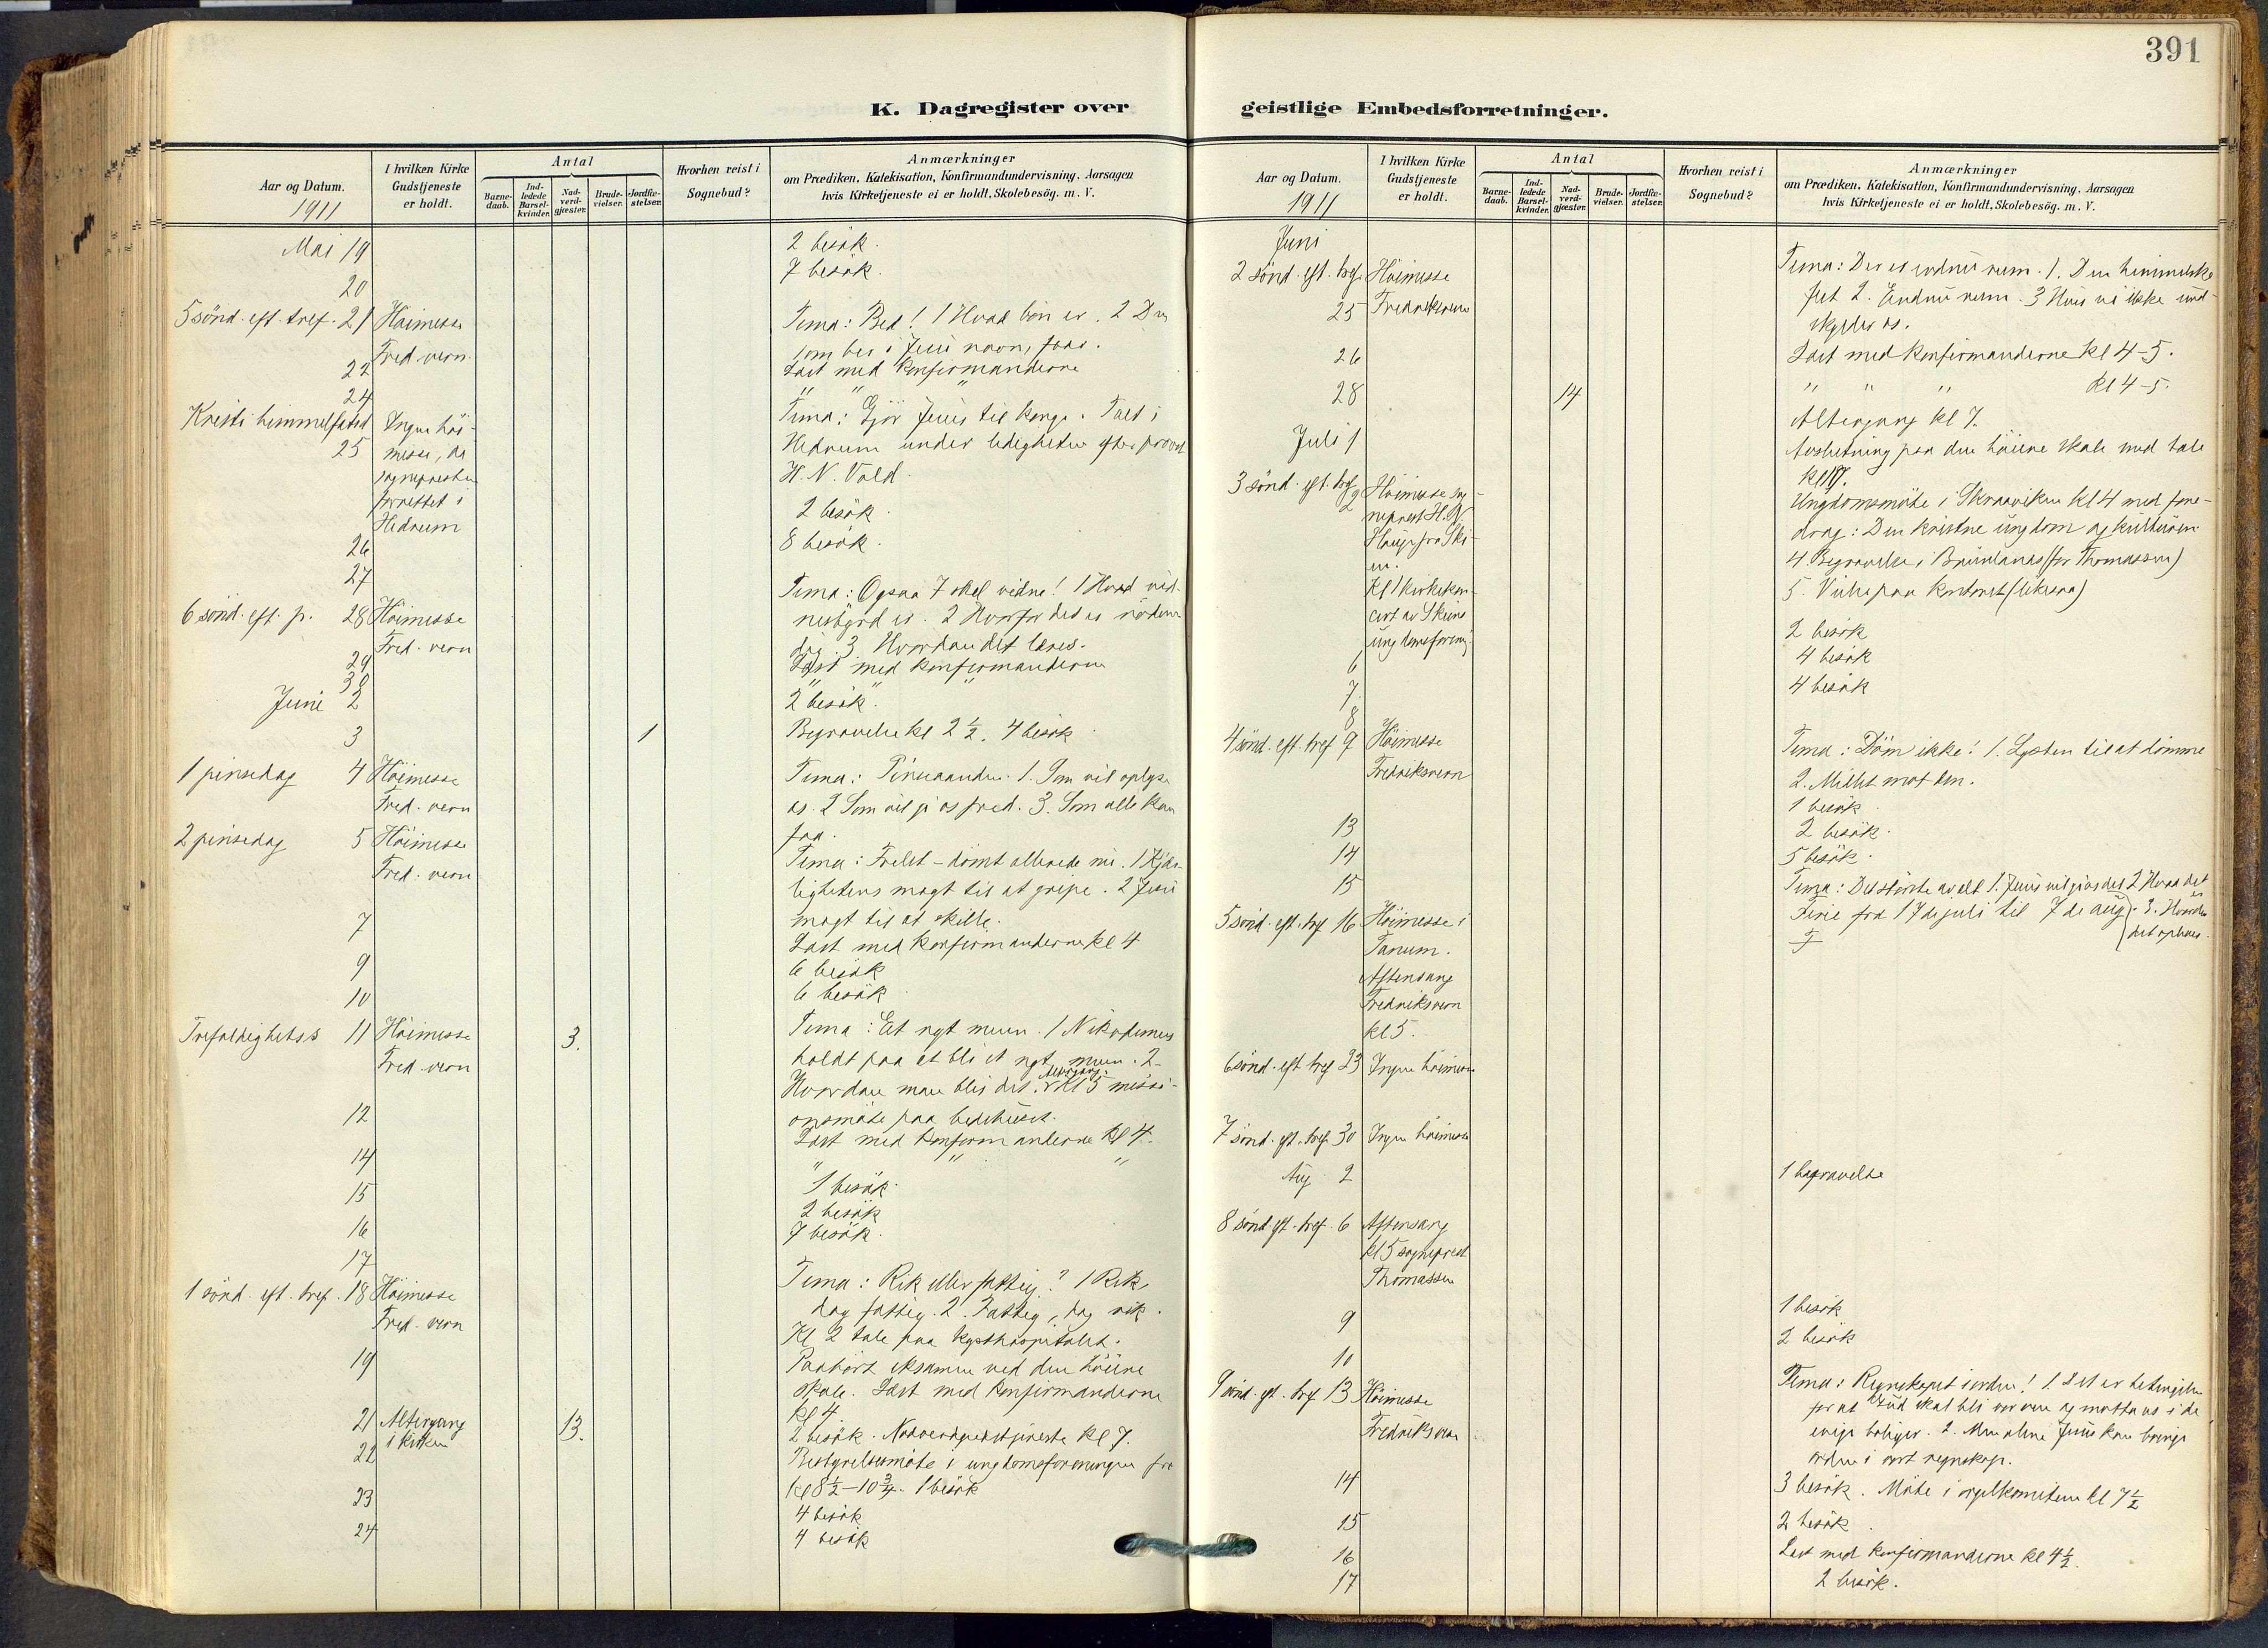 391
K. Dagregister over
geistlige Embedsforretninger.
Aar og Datum.
1911
I hvilken Kirke
Gudstjeneste
er holdt.
Antal
Barne-
daab.
Ind-
ledede
Barsel-
kvinder.
Nad-
verd-
gjæster.
Brude-
vielser.
Jordfæ-
stelser.
Hvorhen reist i
Sognebud?
Anmærkninger
om Prædiken, Katekisation, Konfirmandundervisning, Aarsagen
hvis Kirketjeneste ei er holdt, Skolebesög. m. V.
Mai 19
2 besök.
20
7 besök.
5 sönd. eft. tref. 21 Höimesse
Fred. vern
Tema: Bed! 1 Hvad bön er. 2 Den
som ber i Jesu navn, faar.
22
Læst med konfirmanderne
24
" " "
Kristi himmelfartsd
25
Ingen höi-
messe, da
sognepresten
forrettet i
Hedrum
Tema: Gjör Jesus til konge. Talt i
Hedrum under ledigheten efter provst
H. N. Vold.
26
2 besök
27
8 besök.
6 sönd. eft. p. 28 Höimesse
Fred. vern
Tema: Ogsaa I skal vidne! 1 Hvad vid-
nesbyrd er. 2 Hvorfor det er nödven-
dig. 3. Hvordan det læres.
29
Læst med konfirmanderne
30
" " "
Juni 2
2 besök.
3
1
Begravelse kl 2 1/2. 4 besök
1 pinsedag 4 Höimesse
Fred. vern
Tema: Pinseaanden. 1. Som vil oplyse
os. 2 Som vil gi os fred. 3. Som alle kan
faa.
2 pinsedag 5 Höimesse
Fred. vern
Tema: Frelst - dömt allerede nu. 1 Kjær-
lighetens magt til at gripe. 2 Jesu
magt til at skille.
7
Læst med konfirmanderne kl 4
9
6 besök
10
6 besök
Trefoldighetss 11 Höimesse
Fred. vern
3.
Tema: Et nyt menn. 1 Nikodemus
holdt paa at bli et nyt menn. 2
Hvordan man blir det. Altergang. Kl 5 missi-
onsmöte paa bedehuset.
12
Læst med konfirmanderne kl 4.
14
" " "
15
1 besök.
16
2 besök
17
7 besök.
1 sönd. eft. tref. 18 Höimesse
Fred. vern
Tema: Rik eller fattig? 1 Rik,
dog fattig. 2. Fattig, dog rik.
Kl 2 tale paa kysthospitalet.
19
Paahört eksamen ved den höiere
skole. Læst med konfirmanderne
kl 4.
21 Altergang
i kirken
13.
2 besök. Nadverdgudstjeneste kl 7.
22
Bestyrelsesmöte i ungdomsforeningen fra
kl 8 1/2 - 10 3/4. 1 besök
23
4 besök
24
4 besök
Aar og Datum.
1911
I hvilken Kirke
Gudstjeneste
er holdt.
Antal
Barne-
daab.
Ind-
ledede
Barsel-
kvinder.
Nad-
verd-
gjæster.
Brude-
vielser.
Jordfæ-
stelser.
Hvorhen reist i
Sognebud?
Anmærkninger
om Prædiken, Katekisation, Konfirmandundervisning, Aarsagen
hvis Kirketjeneste ei er holdt, Skolebesög. m. V.
Juni
2 sönd. eft. tref. Höimesse
25 Fredriksvern
Tema: Der er endnu rum. 1. Den himmelske
fest 2. Endnu rum. 3 Hvis vi ikke und-
skylder os.
26
Læst med konfirmanderne kl 4-5.
28
14
" " " kl 4-5.
Altergang kl 7.
Juli 1
Avslutning paa den höiere skole med tale
kl
3 sönd. eft. tref. 2 Höimesse sog-
neprest H. N.
Hauge fra Ski-
en.
Kl 1 kirkekon-
cert av Skiens
ungdomsforening
Ungdomsmöte i Skraaviken kl 4 med fore-
drag: Den kristne ungdom og kulturen
4 Begravelse i Brunlanes (for Thomassen)
5. Vielse paa kontoret (likesaa)
6
2 besök
7
4 besök
8
4 besök
4 sönd. eft. tref. 9 Höimesse
Fredriksvern
Tema: Döm ikke! 1. Lysten til at dömme
2. Midlet mot den.
1 besök
13
2 besök.
14
5 besök.
15
5 sönd. eft. tref 16 Höimesse i
Tanum.
Aftensang
Fredriksvern
kl 5.
Tema: Det störste av alt 1. Jesus vil gi os det 2 Hvad det
er. 3. Hvordan
det opleves.
Ferie fra 17 de juli til 7 de aug
6 sönd. eft tref 23 Ingen höimesse
7 sönd. eft. tref. 30 Ingen höimesse
Aug 2
1 begravelse
8 sönd eft. tref. 6 Aftensang
kl 5 sogneprest
Thomassen
9
1 besök
10
2 besök
9 sönd. eft. tref 13 Höimesse
Fredriksvern
Tema: Regnskapet i orden! 1. Det er betingelsen
for at Gud skal bli vor ven og motta os i de
evige boliger. 2. Men alene Jesus kan bringe
orden i vort regnskap.
14
3 besök. Möte i orgelkomiteen kl 7 1/2
15
2 besök
16
Læst med konfirmanderne kl 4 1/2.
17
2 besök.